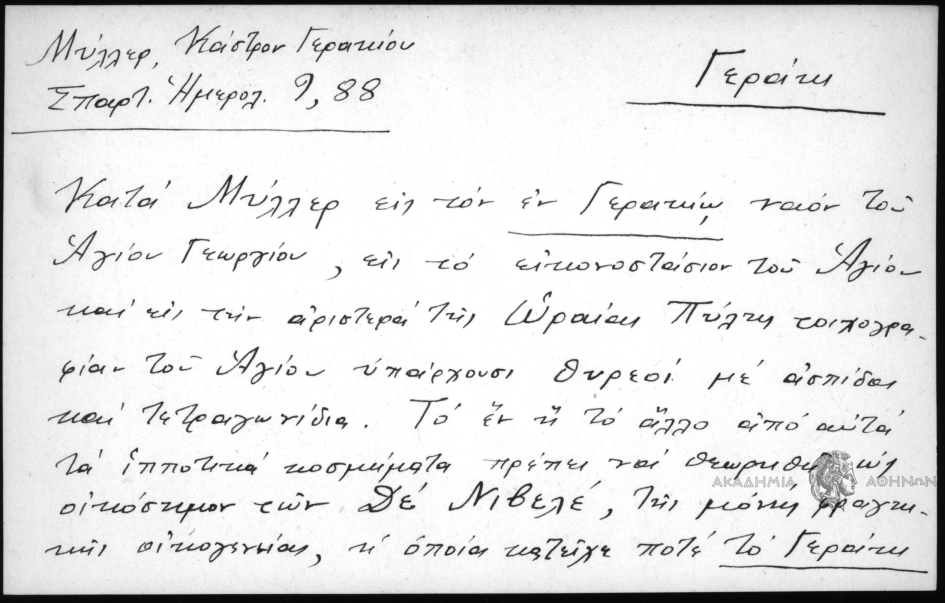 Μύλλερ, Κάστρον Γερακίου
Γεράκι
Σπαρτ. Ἡμερολ. 9, 88
Κατά Μύλλερ εἰς τόν ἐν Γερακίῳ ναόν τοῦ
Ἁγίου Γεωργίου, εἰς τό εἰκονοστάσιον τοῦ Ἁγίου
καί εἰς τήν ἀριστερά τῆς Ὡραίας Πύλης τοιχογρα-
φίαν τοῦ Ἁγίου ὑπάρχουσι θυρεοί μέ ἀσπίδας
καί τετραγωνίδια. Τό ἕν ἤ τό ἄλλο ἀπό αὐτά
τά ἱπποτικά κοσμήματα πρέπει νά θεωρηθῇ ὡς
ΑΚΑΔΗΜΙΑ ΑΘΗΝΩΝ
οἰκόσημον τῶν Δέ Νιβελέ, τῆς μόνης φραγκι-
κῆς οἰκογενείας, ἡ ὁποία κατεῖχε ποτέ τό Γεράκι